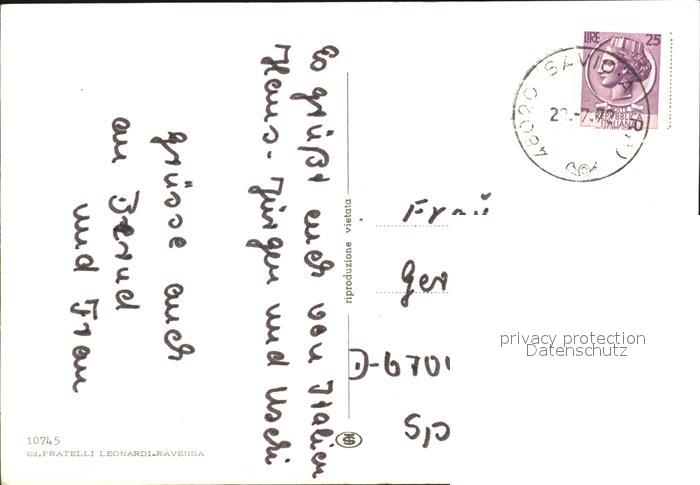 Es grüßt euch von Italien
Hans-Jürgen und Uschi
grüsse auch
an Bernd
und Frau
riproduzione vietata
LIRE 25
POSTE
REPUBBLICA
ITALIANA
48020 SAVIO
Frau
Ger
D-670
Sp
privacy protection
Datenschutz
10745
Ed. FRATELLI LEONARDI-RAVENNA